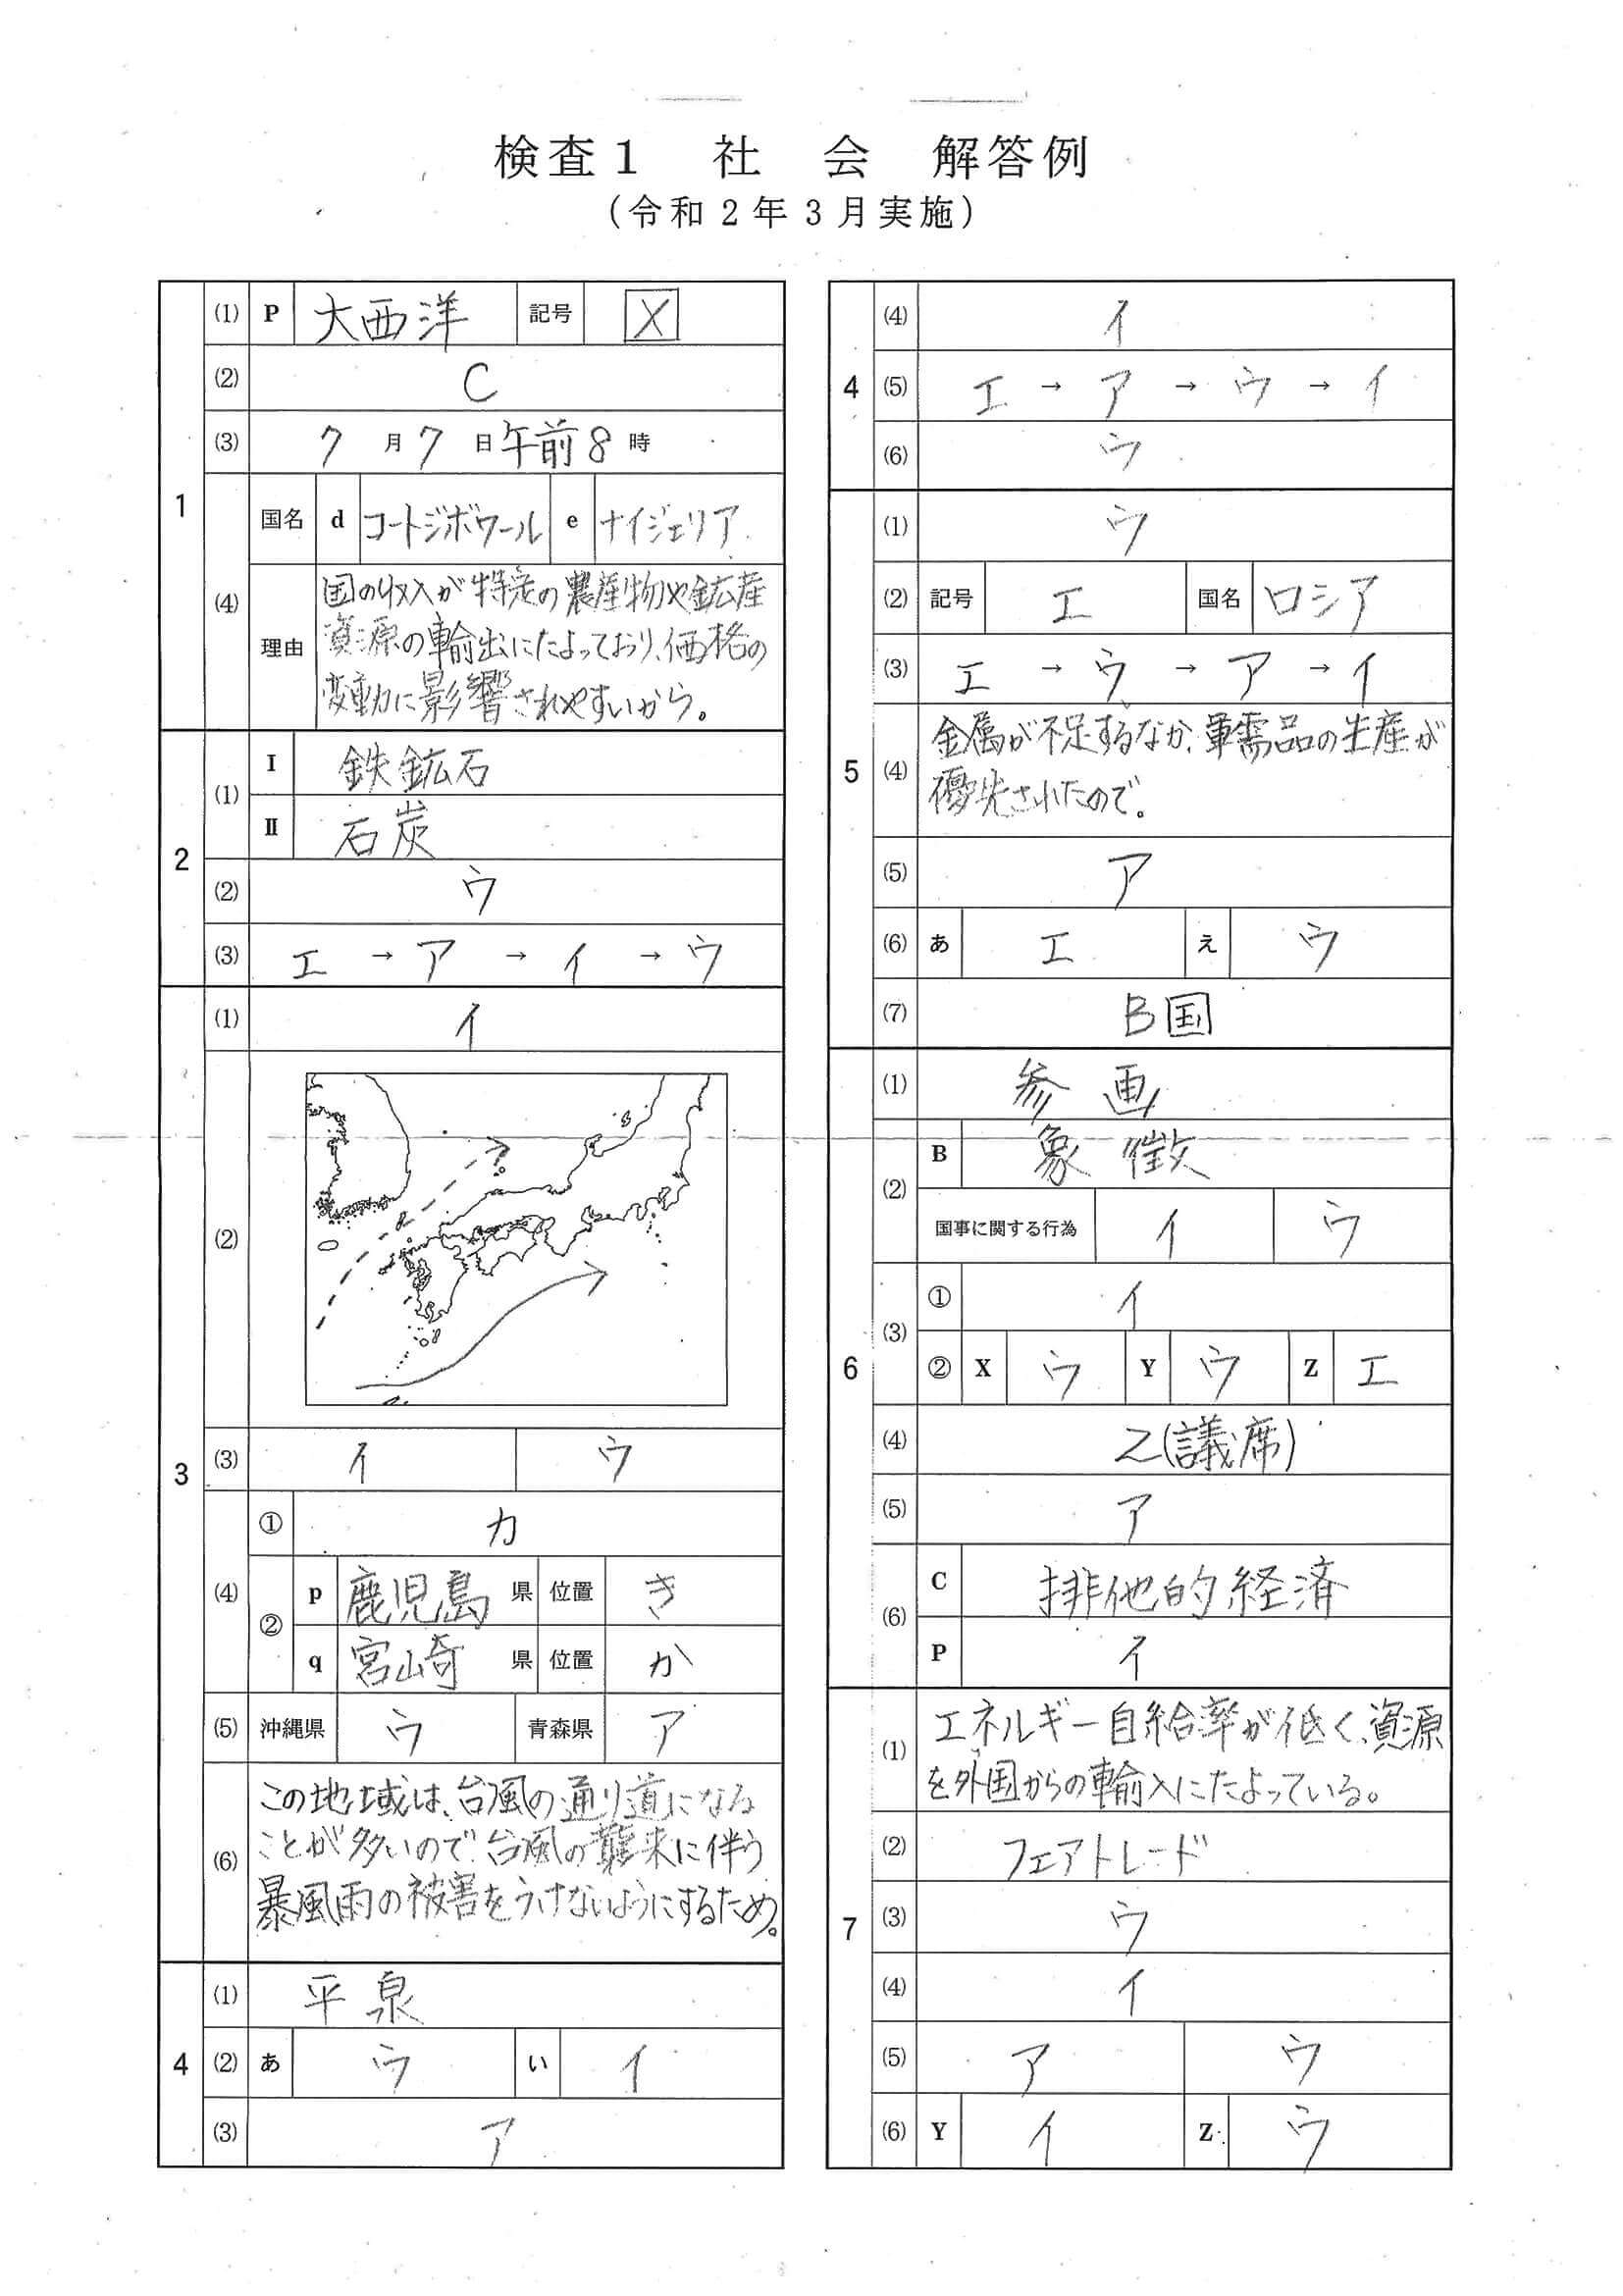 検査１　社　会　解答例
(令和２年３月実施)
1
(1) P 大西洋 記号 X
(2) C
(3) 7 月 7 日 午前 8 時
(4) 国名 d コートジボワール e ナイジェリア
理由
国の収入が特定の農産物や鉱産
資源の輸出にたよっており、価格の
変動に影響されやすいから。
2
(1) I 鉄鉱石
II 石炭
(2) ウ
(3) エ → ア → イ → ウ
3
(1) イ
(2)
(3) イ ウ
(4) ① カ
② p 鹿児島 県 位置 き
q 宮崎 県 位置 か
(5) 沖縄県 ウ 青森県 ア
(6)
この地域は、台風の通り道になる
ことが多いので台風の襲来に伴う
暴風雨の被害をうけないようにするため。
4
(1) 平泉
(2) あ ウ い イ
(3) ア
4
(4) イ
(5) エ → ア → ウ → イ
(6) ウ
5
(1) ウ
(2) 記号 エ 国名 ロシア
(3) エ → ウ → ア → イ
(4)
金属が不足するなか、軍需品の生産が
優先されたので。
(5) ア
(6) あ エ え ウ
(7) B国
6
(1) 参画
(2) B 象徴
国事に関する行為 イ ウ
(3) ① イ
② X ウ Y ウ Z エ
(4) 2(議席)
(5) ア
(6) C 排他的経済
P イ
7
(1)
エネルギー自給率が低く、資源
を外国からの輸入にたよっている。
(2) フェアトレード
(3) ウ
(4) イ
(5) ア ウ
(6) Y イ Z ウ